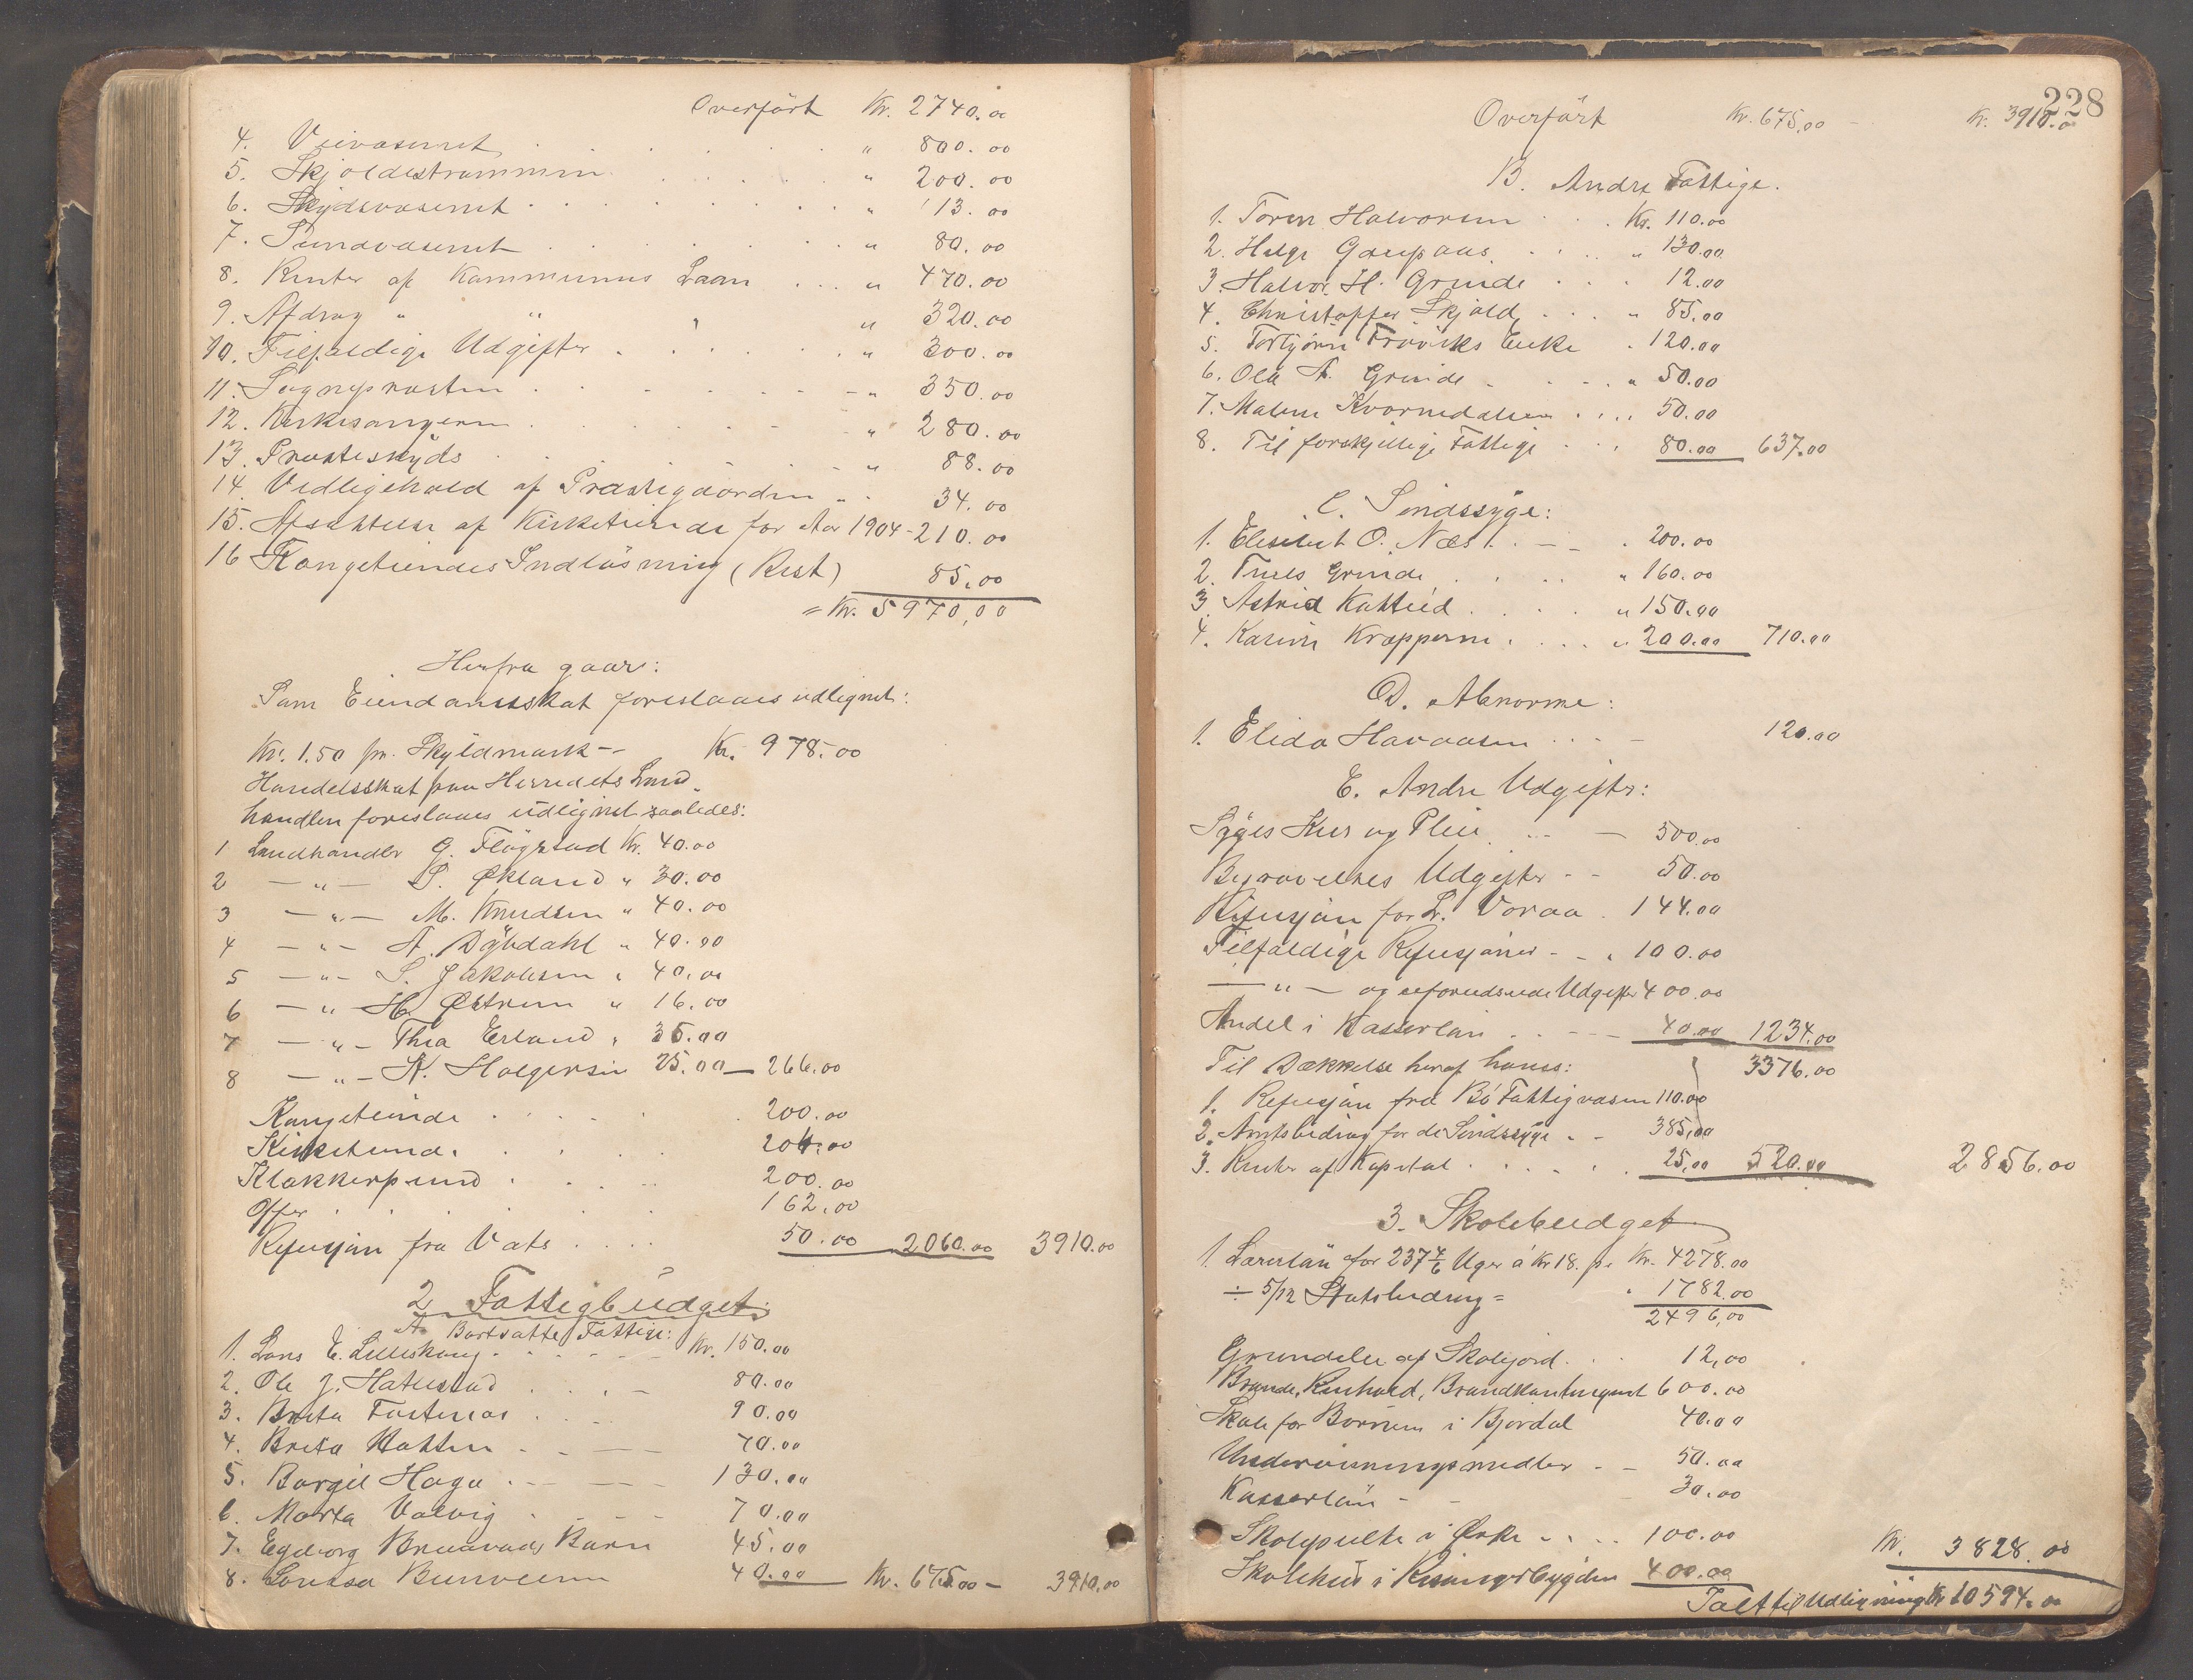 Overført Kr. 2740.00
4. Veivæsenet " 800.00
5. Skjoldestrømmen " 200.00
6. Skydsvæsenet " 13.00
7. Sundvæsenet " 80.00
8. Renter af Kommunens Laan " 470.00
9. Afdrag " " " 320.00
10. Tilfældige Udgifter " 300.00
11. Sognepræsten " 350.00
12. Kirkesangeren " 280.00
13. Præsteskyds " 88.00
14. Vedligehold af Præstegaarden " 34.00
15. Afsættelse af Kirketiende for Aar 1904 - 210.00
16 Kongetiendes Indløsning (Rest) 85.00
= Kr. 5970,00
Herfra gaar:
Som Eiendomsskat foreslaaes udlignet:
Kr. 1.50 pr. Skyldmark -- Kr. 978.00
Handelsskat paa Herredets Land-
handlen foreslaaes udlignet saaledes:
1 Landhandler G. Fløgstad Kr. 40.00
2 — " — S. Økland " 30.00
3 — " — M. Knudsen " 40.00
4 — " — A. Dybdahl " 40.00
5 — " — S. Jakobsen " 40.00
6 — " H. Østrem " 16.00
7 — " — Thea Erland " 35.00
8 — " — K. Holgersen 25.00 — 266.00
Kongetiende 200.00
Kirketiende 204.00
Klokkerpund 200.00
Offer 162.00
Refusjon fra Vats 50.00 2060.00 3910.00
2 Fattigbudget:
A. Bortsatte Fattige:
1. Lars E. Lilleskog Kr. 150.00
2. Ole J. Hatlestad 80.00
3. Brita 90.00
4. Brita Hatten 70.00
5. Borgil Haga 130.00
6. Marta Valvig 70.00
7. Egeborg Barn 45.00
8. Lovisa 40.00 Kr. 675.00 — 3910.00
228
Overført Kr. 675,00 — Kr. 3910.00
B. Andre Fattige.
1. Toren Halvorsen Kr. 110.00
2. Helge Gaupaas " 130.00
3. Halvor H. Grinde 12.00
4. Christoffer Skjold " 85.00
5. Torbjørn Frøviks Enke 120.00
6. Ole A. Grinde " 50.00
7. Malene Kvernedalsen 50.00
8. Til forskjellige Fattige 80.00 637.00
C. Sindssyge:
1. Elisebet O. Næs 200.00
2. Truls Grinde " 160.00
3. Astrid Kattlid " 150.00
4. Karine Kropperne " 200.00 710.00
D. Abnorme:
1. Elida Havaasen 120.00
E. Andre Udgifter:
Syges Kur og Pleie — 500.00
Begravelses Udgifter -- 50.00
Refusjon for L. Voraa 144.00
Tilfældige Refusjoner - - 100.00
— " — og uforudseede Udgifter 400.00
Andel i Kasserløn 40.00 1234.00
Til Dækkelse heraf haves: 3376.00
1. Refusjon fra Bø Fattigvæsen 110.00
2. Amtsbidrag for de Sindssyge - - 385,00
3. Renter af Kapital 25,00 520.00 2856.00
3. Skolebudget
1. Lærerløn for 237 4/6 Uger á Kr 18. pr Kr. 4278.00
÷ 5/12 Statsbidrag = " 1782.00
2496,00
Grundleie af Skolejord 12,00
Brænde, Renhold, Brandkontingent 600.00
Skole for Børnene i Bjordal 40.00
Undervisningsmidler - - 50.00
Kasserløn - - 30.00
Skolepulte i Ørke 100.00
Skolehus i Kisingerbygden 400.00 Kr. 3828.00
Talt til Udligning Kr 10594.00